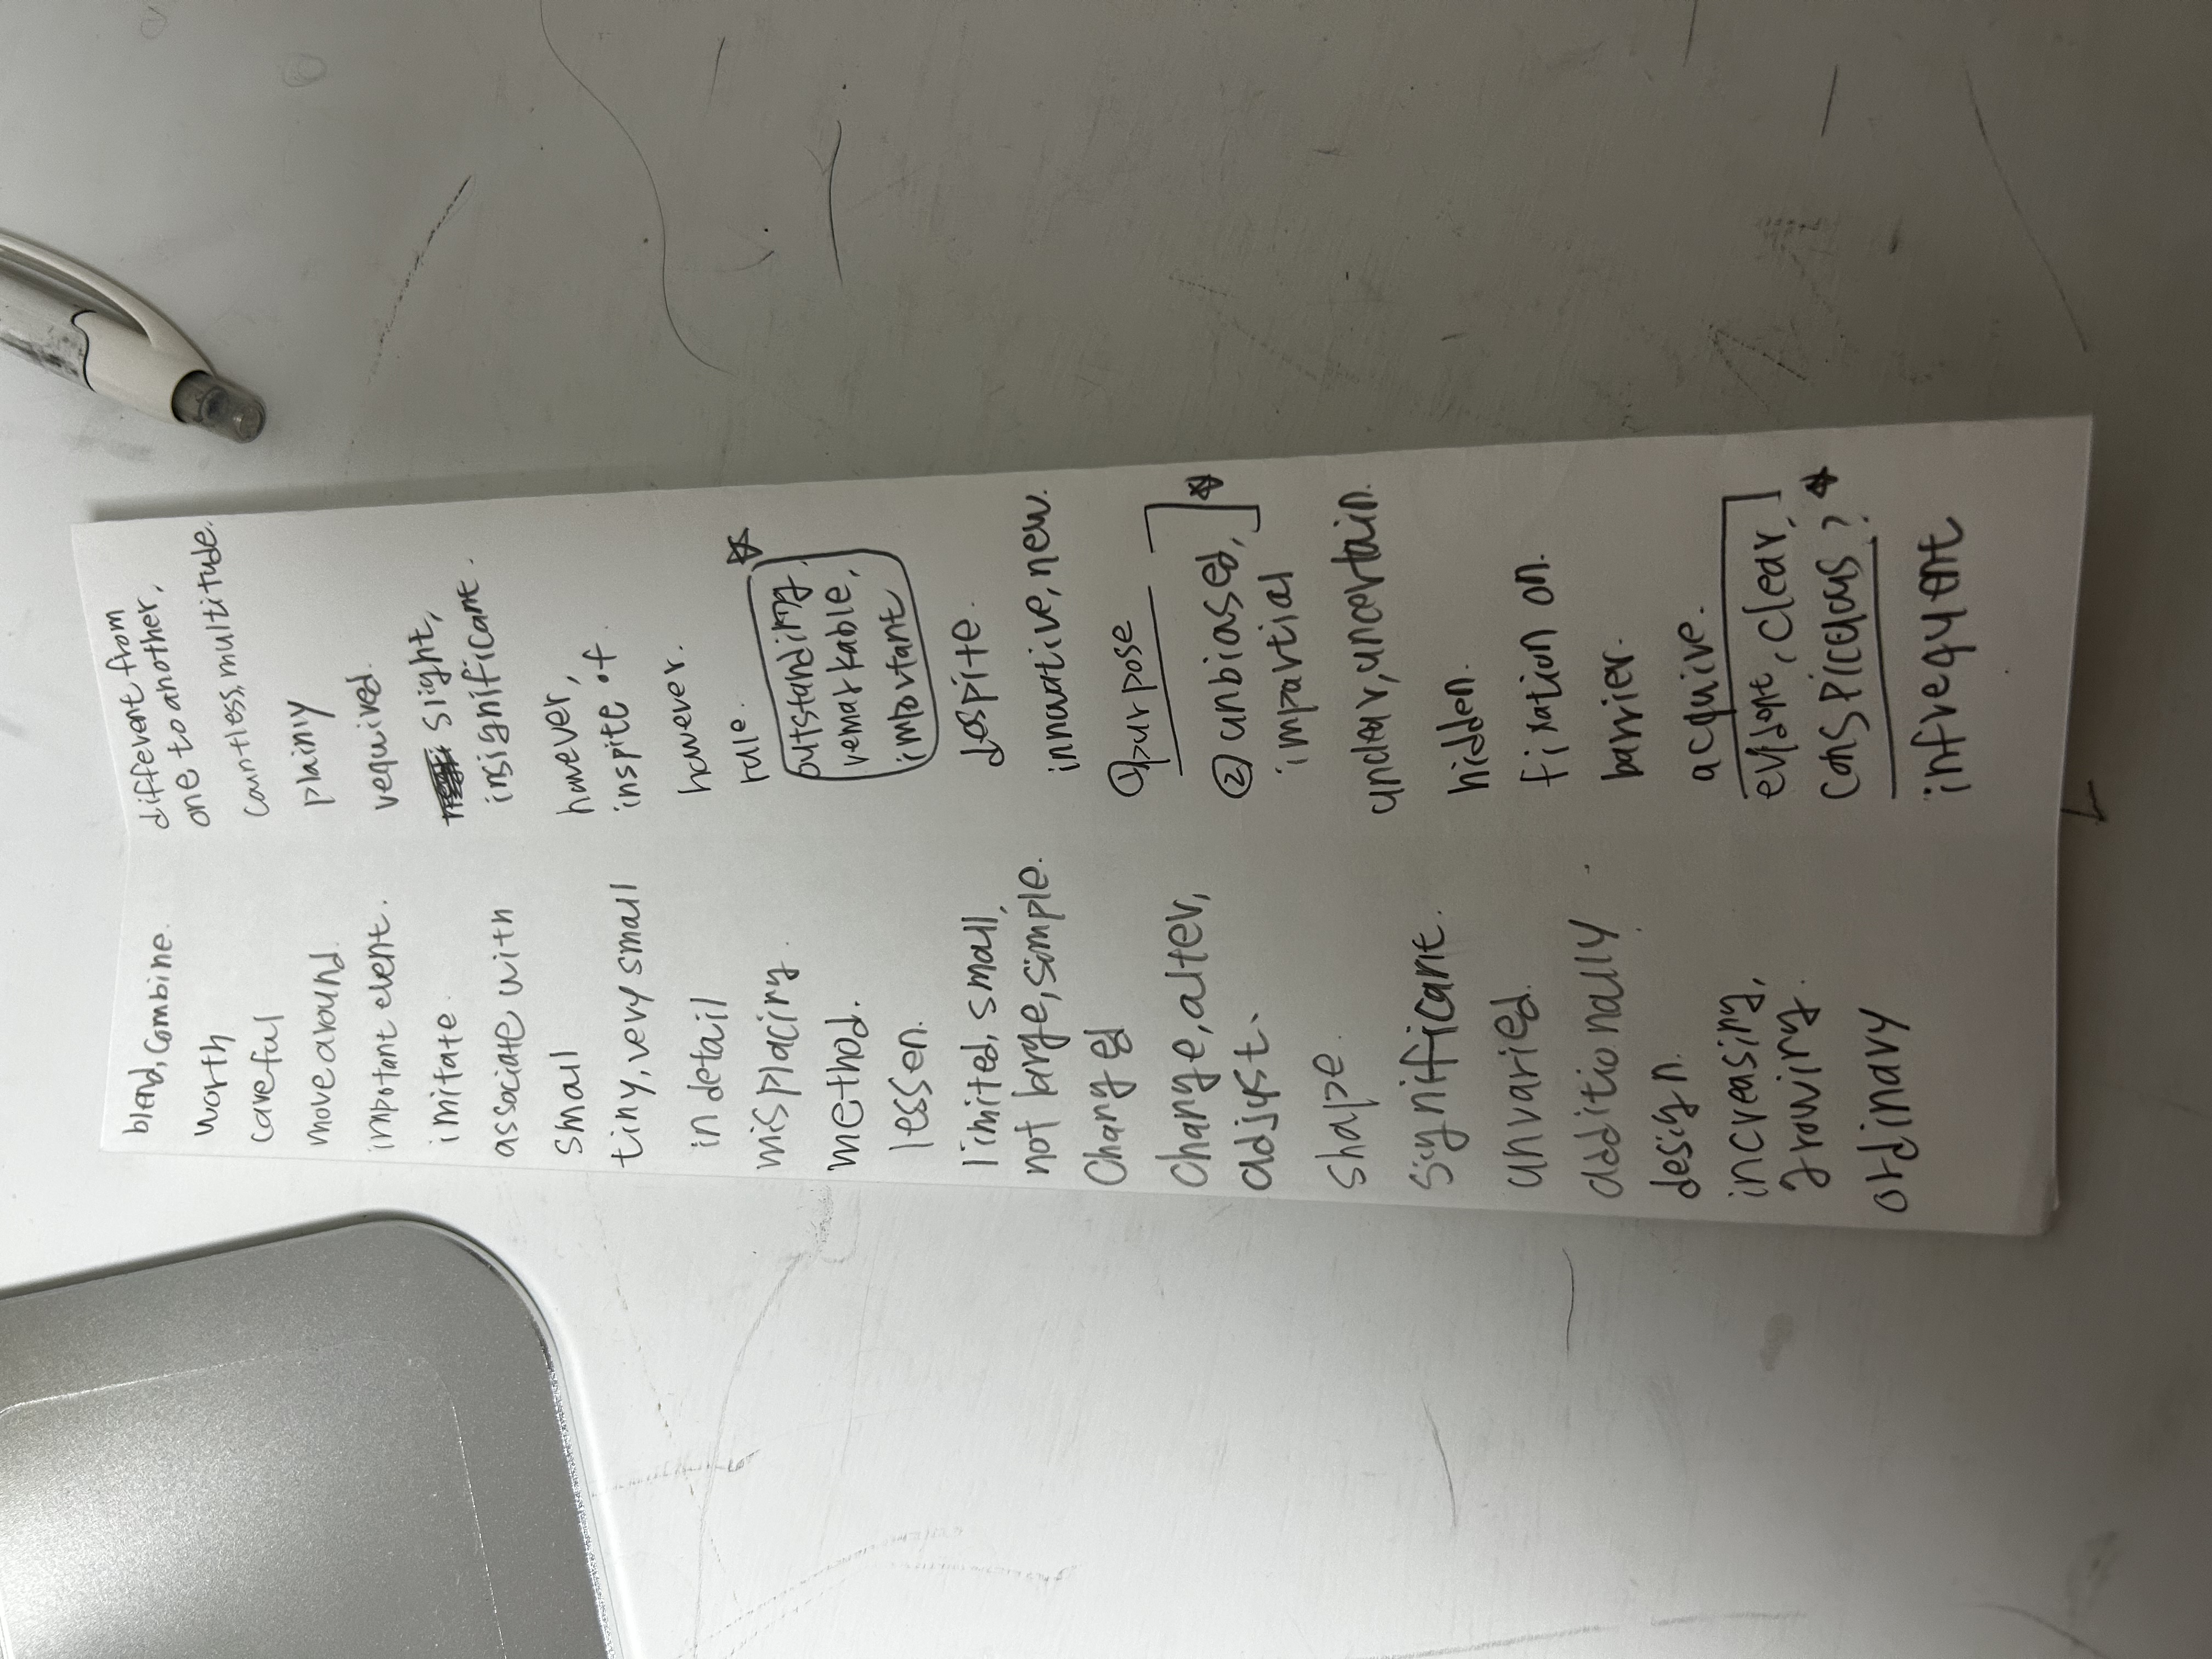 blend, combine.
worth
careful
move around.
impotant event.
imitate.
associate with
small
tiny, very small
in detail
misplacing.
method.
lessen.
limited, small,
not large, simple.
changed
change, alter,
adjust.
shape.
significant.
unvaried.
additionally.
design.
increasing,
growing.
ordinary
different from
one to another,
countless, multitude.
plainly
required.
slight,
insignificant.
however,
inspite of
however.
rule.
outstanding,
remarkable,
important
despite.
innovative, new.
① purpose
② unbiased,
impartial
unclear, uncertain.
hidden.
fixation on.
barrier.
acquire.
evident, clear,
conspicuous?
infrequent